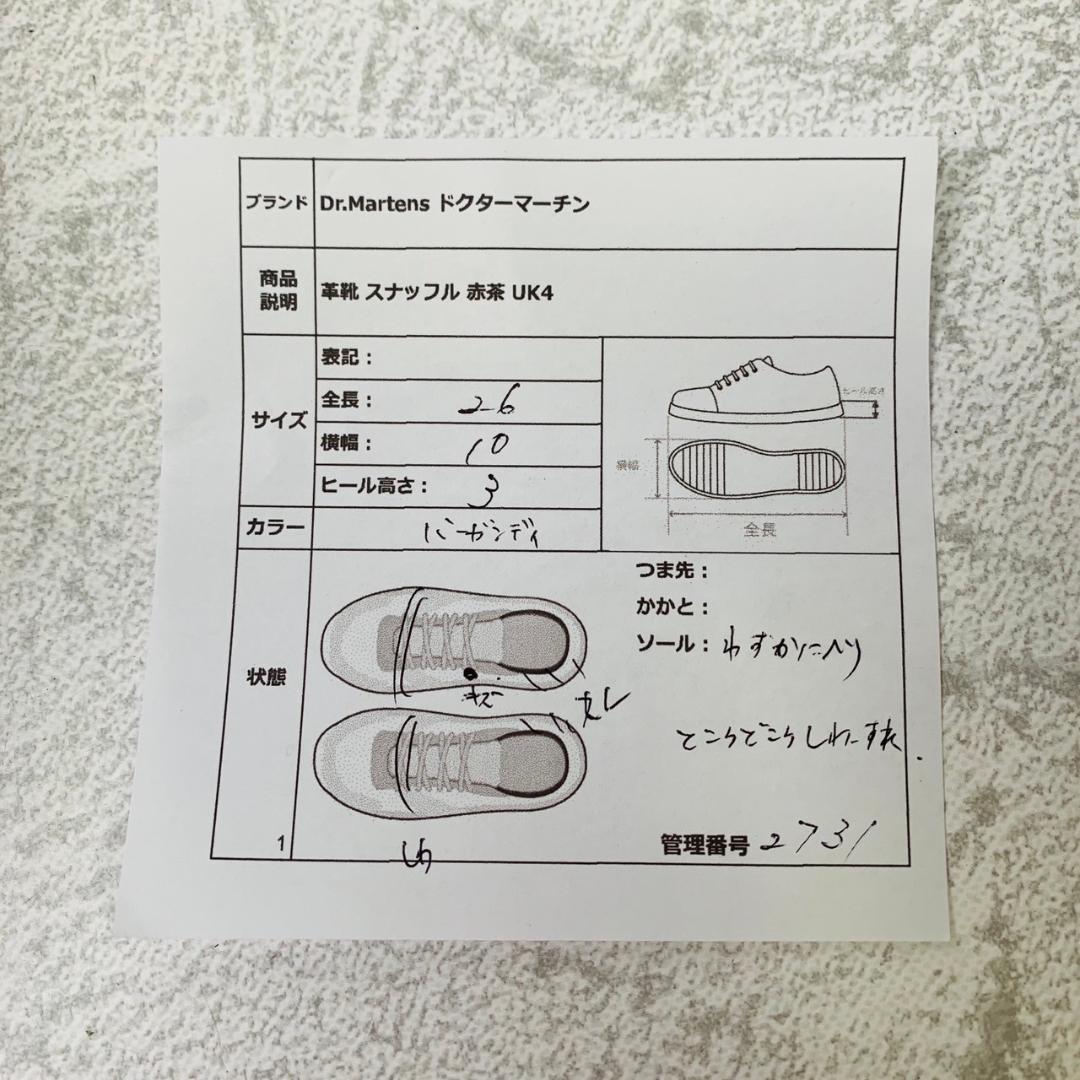 ブランド Dr.Martens ドクターマーチン
商品説明 革靴 スナッフル 赤茶 UK4
サイズ
表記：
全長： 26
横幅： 10
ヒール高さ： 3
ヒール高さ
横幅
全長
カラー バーガンディ
状態
つま先：
かかと：
ソール： わずかにヘリ
キズ
スレ
ところどころしわ、すれ
しわ
1
管理番号 2731